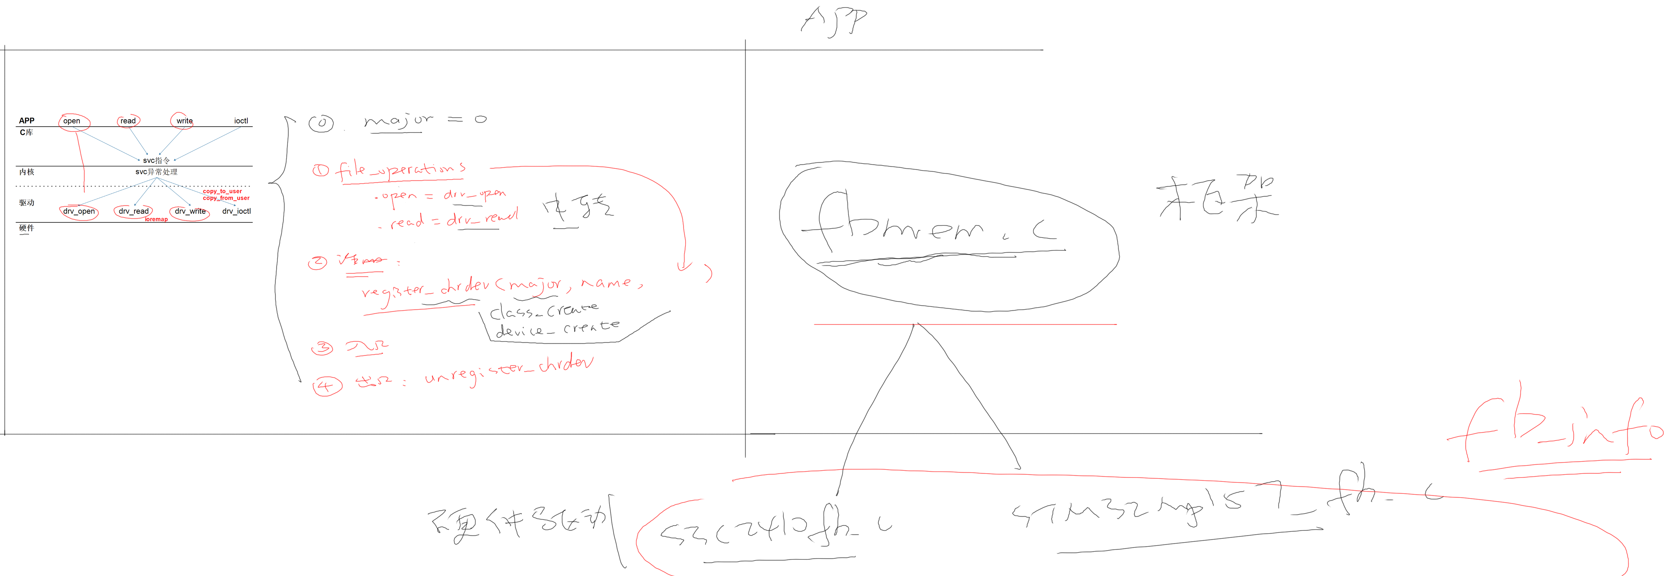 APP
APP open read write ioctl
C库
svc指令
内核 svc异常处理
copy_to_user
copy_from_user
驱动
drv_open drv_read drv_write drv_ioctl
ioremap
硬件
⓪ major = 0
① file_operations
.open = drv_open
.read = drv_read
② 注册:
register_chrdev(major, name, )
class_create
device_create
③ 入口
④ 出口: unregister_chrdev
fbmem.c
框架
fb_info
硬件驱动
s3c2410fb.c
STM32mp157_fb.c